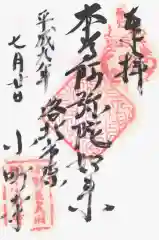 奉拝
本尊阿弥陀如来
洛北市原
小町寺
平成九年
七月廿日